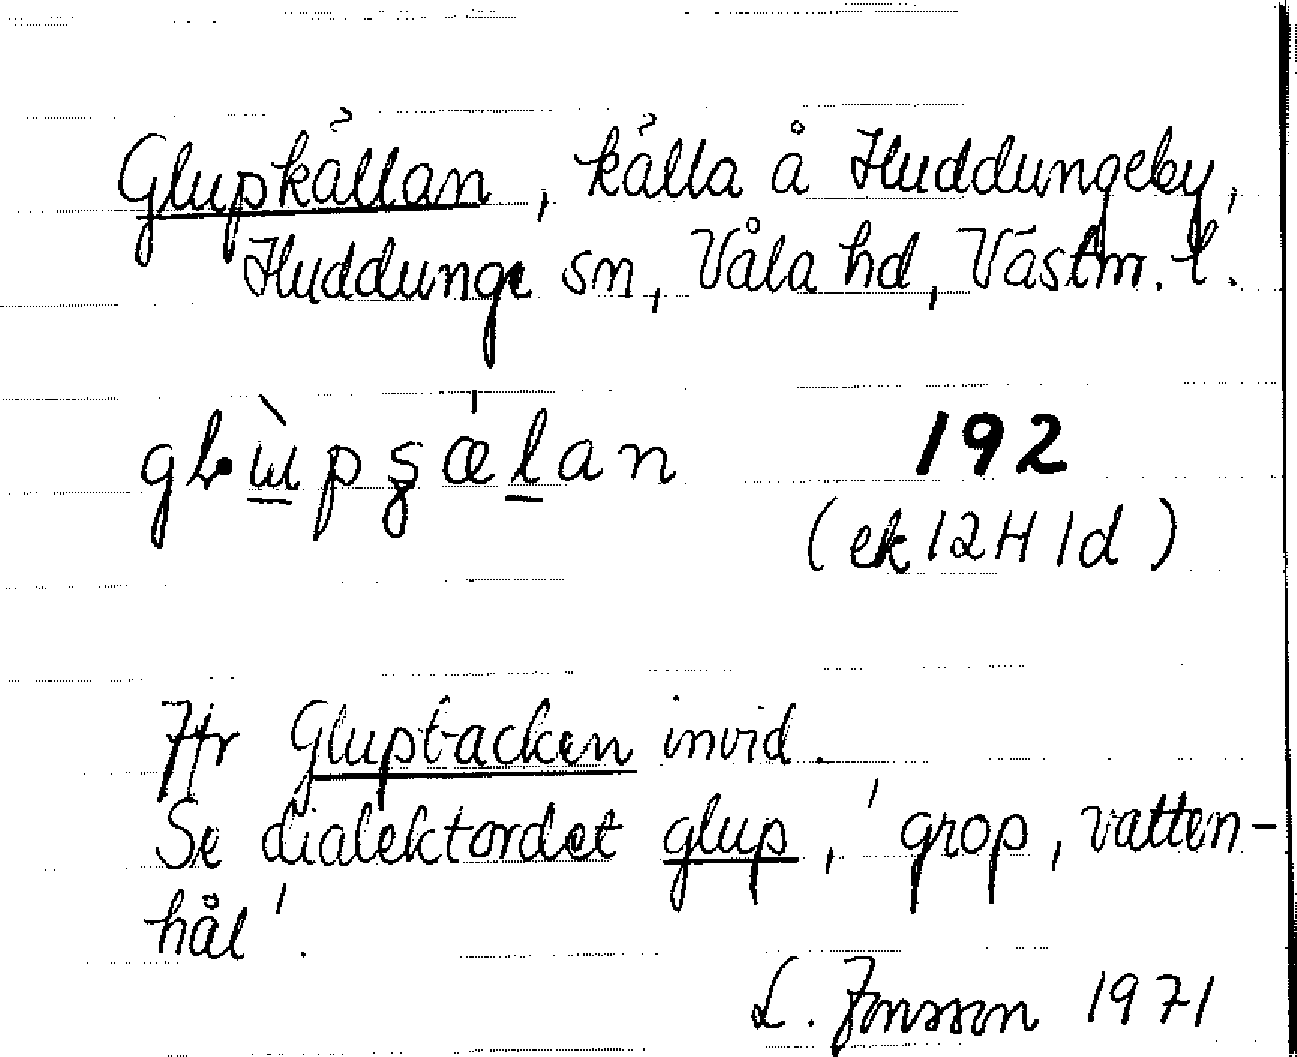 Glupkällan, källa å Huddungeby,
Huddunge sn, Våla hd, Västm. l.
192
(ek 12H 1d)
Jfr Glupbacken invid.
Se dialektordet glup, 'grop, vatten-
hål'.
L. Jonsson 1971